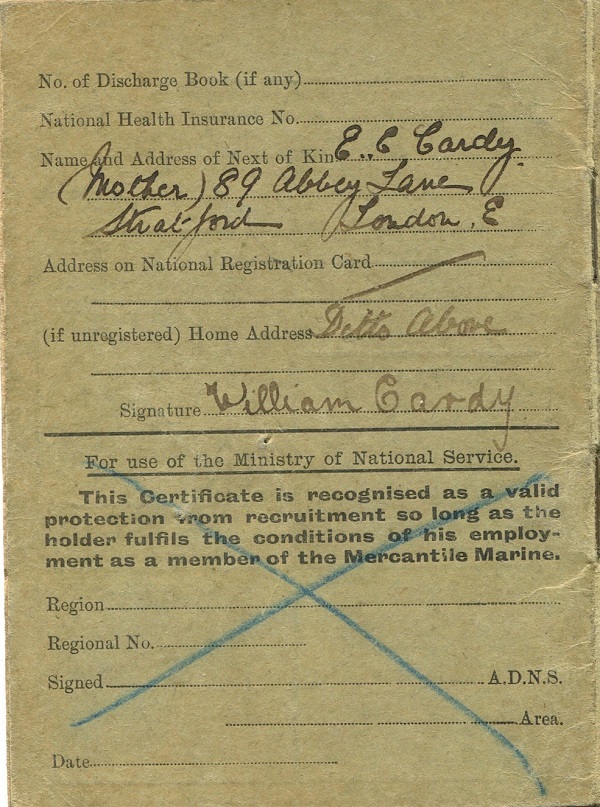 No. of Discharge Book (if any)
National Health Insurance No.
Name and Address of Next of Kin E. E Cardy.
(Mother) 89 Abbey Lane
Stratford London, E
Address on National Registration Card
(if unregistered) Home Address Ditto Above
Signature William Cardy
For use of the Ministry of National Service.
This Certificate is recognised as a valid
protection from recruitment so long as the
holder fulfils the conditions of his employ-
ment as a member of the Mercantile Marine.
Region
Regional No.
Signed A.D.N.S.
Area.
Date